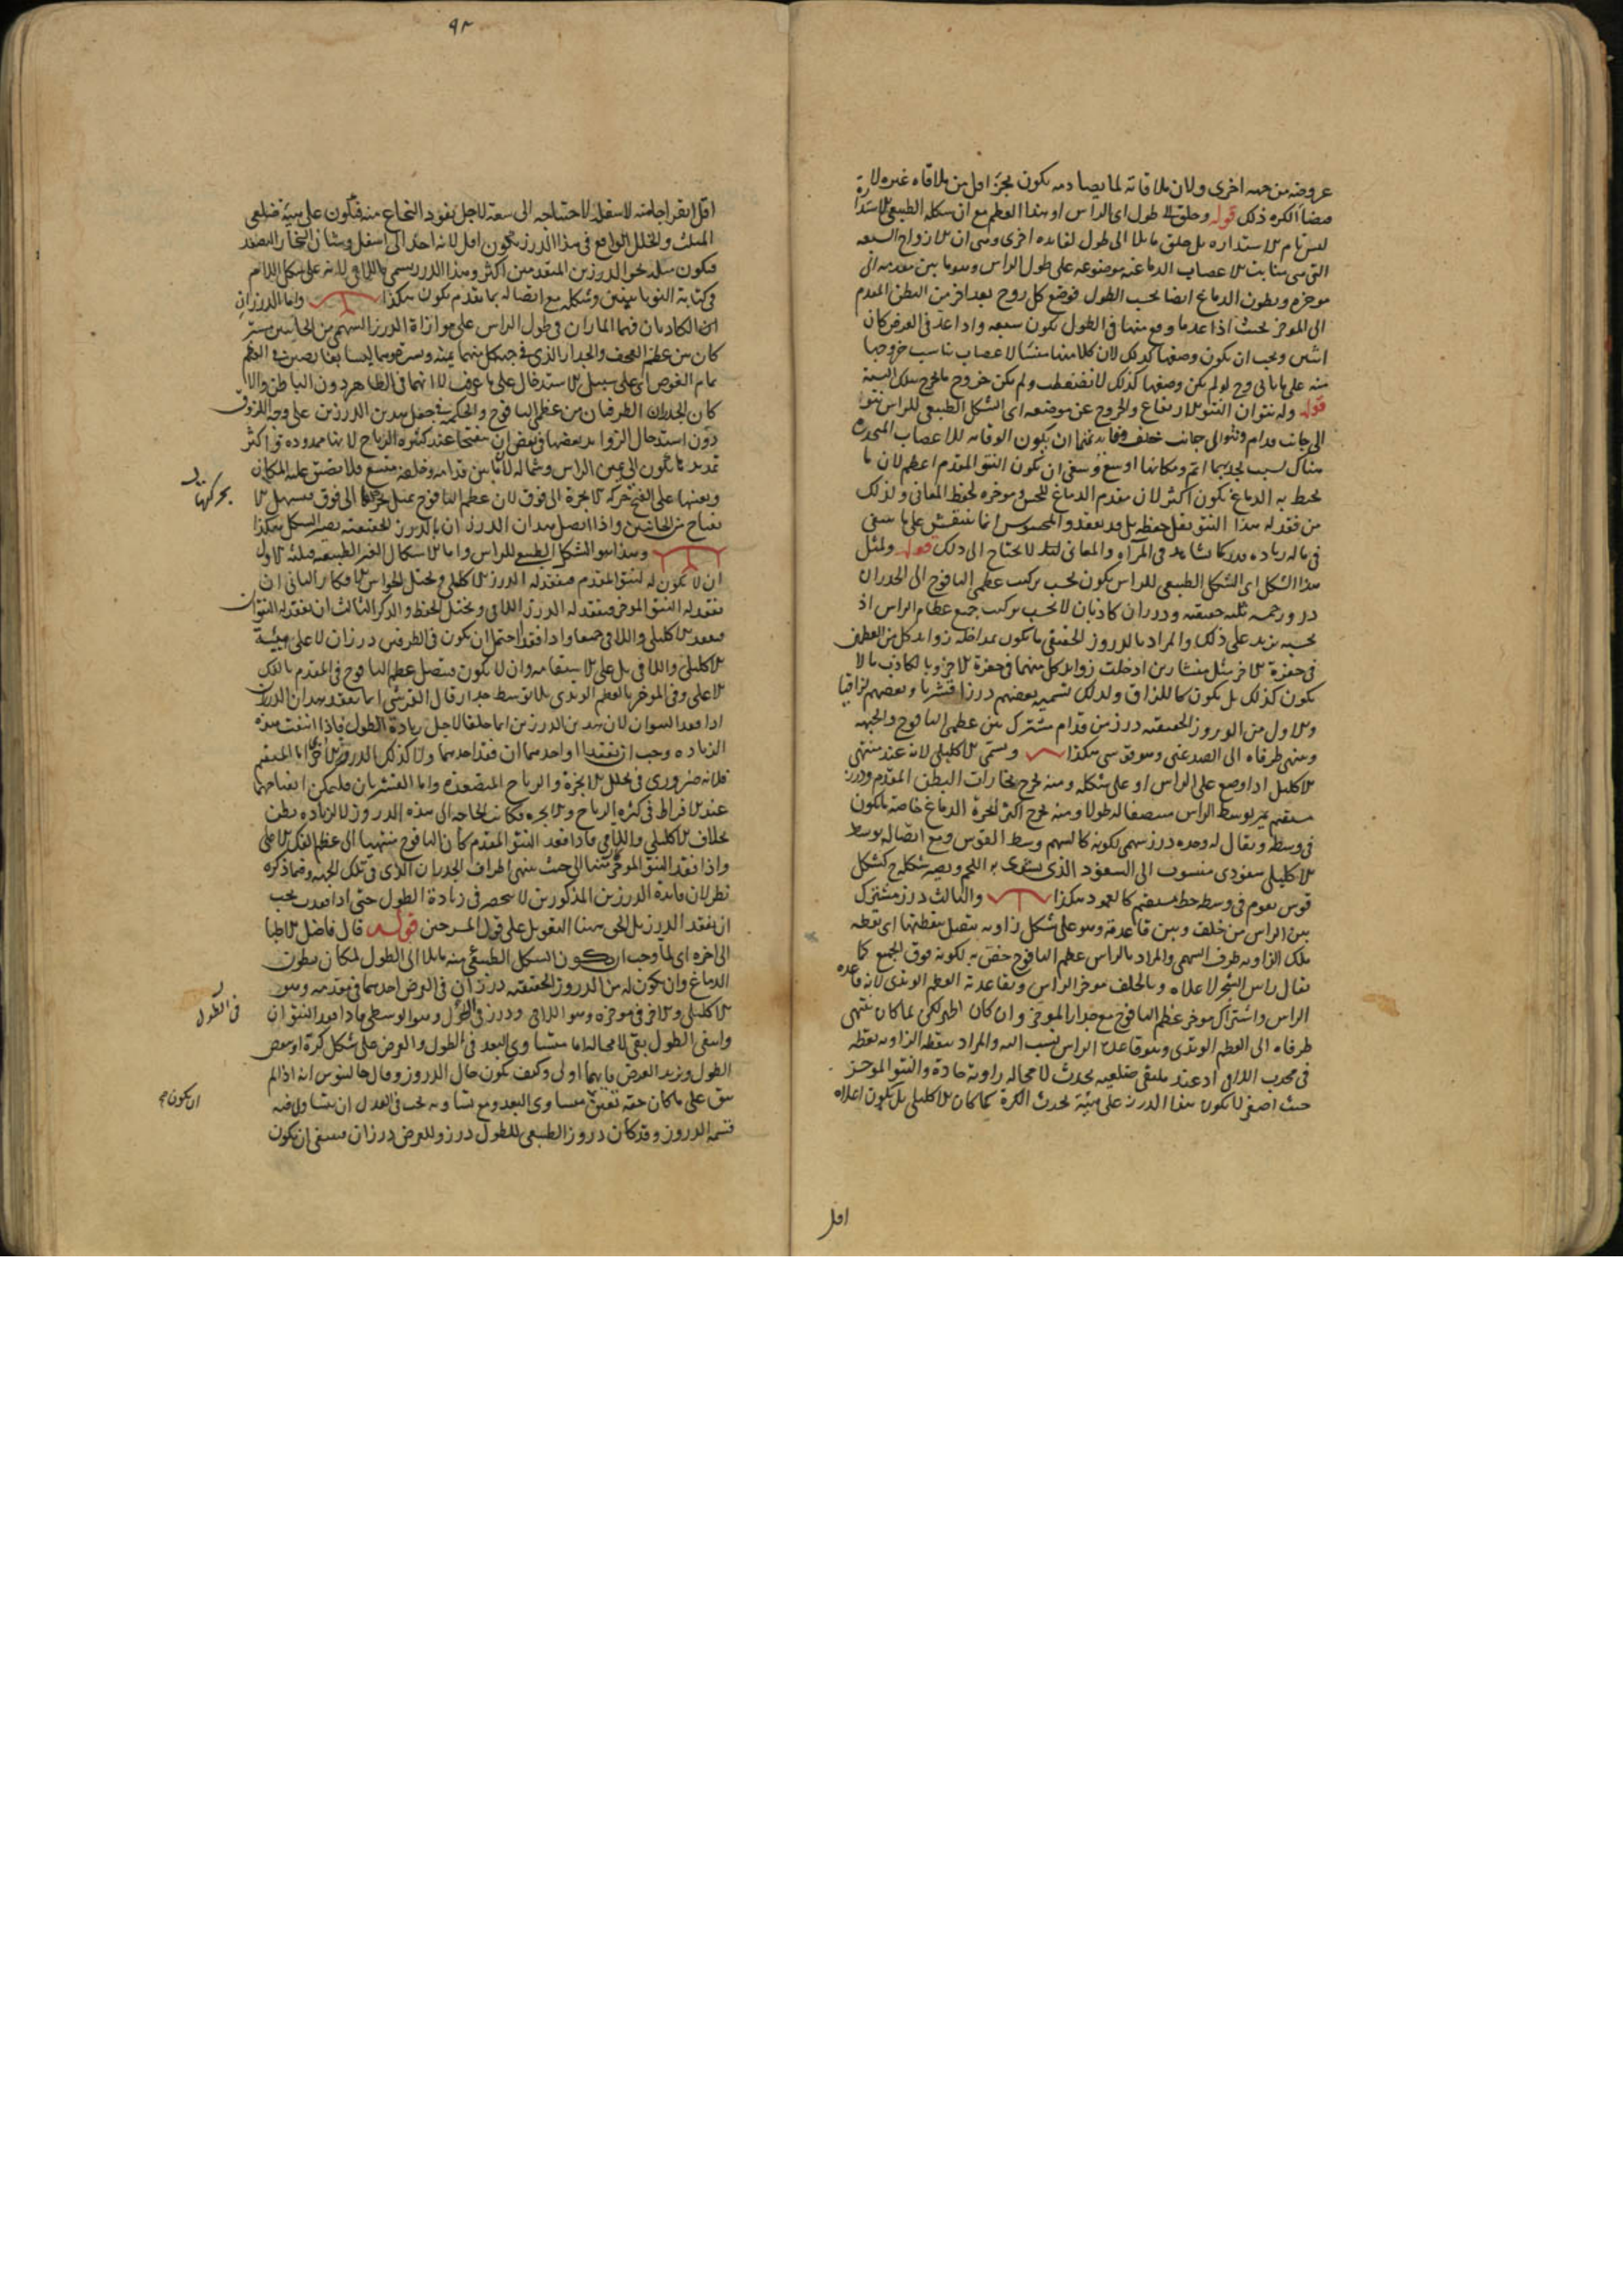 عروضه من جهه اخرى ولان ملاقاته لما يصادمه يكون بجزء اقل من ملاقاه غيره لا
الكره ذلك قوله وخلق الى طول اى الراس او هذا العظم مع ان شكله الطبيعى الاستدارة
ليس تام الاستداره بل خلق مايلا الى طول لفايده اخرى وهى ان الازواج السبعه
التى هى منابت الاعصاب الدماغيه موضوعه على طول الراس وهو ما بين مقدمه الى
موخره وبطون الدماغ ايضا بحسب الطول فوضع كل زوج بعد اخر من البطن المقدم
الى الموخر بحيث اذا عد ما وقع منها فى الطول يكون سبعه واذا عد فى العرض كان
اثنين ويجب ان يكون وضعها كذلك لان كلا منها منشا لاعصاب يناسب خروجها
منه على ما ياتى ولو لم يكن وضعها كذلك لا ولم يكن خروج ما يخرج
قوله وله نتوان النتو الارتفاع والخروج عن موضعه اى الشكل الطبيعى للراس نتو
الى جانب قدام ونتو الى جانب خلف ان يكون الوقايه للاعصاب المنحدره
هناك بسبب انم ومكانها اوسع وينبغى ان يكون النتو المقدم اعظم لان ما
يحيط به الدماغ يكون اكثر لان مقدم الدماغ للحس وموخره لحفظ المعانى ولذلك
من فقد له هذا النتو يقل حفظه بل قد يفقد والمحسوس انما ينتقش على ما ينبغى
فى ماله زياده كما نشاهد فى المرآه والمعانى لا يحتاج الى ذلك قوله ولمثل
هذا الشكل اى الشكل الطبيعى للراس يكون بحسب تركيب عظمى اليافوخ الى الجدران
دروز خمسه ثلثه حقيقيه ودرزان كاذبان لا بحسب تركيب جميع عظام الراس اذ
بحسبه يزيد على ذلك والمراد بالدروز الحقيقى ما يكون بمداخله زوايد كل من العظمين
فى حفرة الاخر مثل منشارين ادخلت زوايد كل منهما فى حفرة الاخر وبالكاذب ما لا
يكون كذلك بل يكون كالملزاق ولذلك تسميه بعضهم درزا قشريا وبعضهم لزاقيا
والاول من الدروز الحقيقيه درز من قدام مشترك بين عظمى اليافوخ والجبهه
ومنتهى طرفاه الى الصدغين وهو قوسى هكذا ويسمى الاكليلى لانه عند منتهى
الاكليل اذا وضع على الراس او على شكله ومنه يخرج بخارات البطن المقدم ودرز
مستقيم يمر بوسط الراس منصفا له طولا ومنه يخرج اكثر ابخرة الدماغ خاصة ما يكون
فى وسطه ويقال له وحده درز سهمى لكونه كالسهم وسط القوس ومع اتصاله بوسط
الاكليلى سفودى منسوب الى السفود الذى يشوى به اللحم ويصير شكله كشكل
قوس يقوم فى وسطه خط مستقيم كالعمود هكذا والثالث درز مشترك
بين الراس من خلف وبين قاعدته وهو على شكل زاويه يتصل بنقطتها اى نقطه
تلك الزاويه طرف السهمى والمراد بالراس عظم اليافوخ خص به لكونه فوق الجميع كما
يقال راس الشجر لاعلاه وبالخلف موخر الراس وبقاعدته العظم الوتدى لانه قاعده
الراس واشتراك موخر عظم اليافوخ مع جدار الموخر وان كان اظهر لكن لما كان ينتهى
طرفاه الى العظم الوتدى وهو قاعدة الراس نسب اليه والمراد بنقطه الزاويه نقطه
فى محدب اللامى اذ عند ملتقى ضلعيه يحدث لا محاله زاوية حادة والنتو الموخر
حيث اصغر لا يكون هذا الدرز على هيئة تحدث الكرة كما كان الاكليلى بل يكون اعلاه
اقل
٩٢
اقل انفراجا منه لاسفله لاحتياجه الى سعته لاجل نفوذ النخاع منه فيكون على هيئة ضلعى
المثلث والتخلل الواقع فى هذا الدرز يكون اقل لانه اخذ الى اسفل وشان البخار التصعد
فيكون ميله نحو الدرزين المتقدمين اكثر وهذا الدرز يسمى باللامى لانه على شكل اللام
فى كتابة اليونانيين وشكله مع اتصاله بما تقدم يكون هكذا واما الدرزان
الكاذبان فهما الماران فى طول الراس على موازاة الدرز السهمى من الجانبين
بين عظم القحف والجدار الذى فى جهة كل منهما يمنه ويسره وليسا بغايصين فى العظم
تمام الغوص اى على سبيل الاستدخال على ما عرف لانهما فى الظاهر دون الباطن والا
كان الجدران الطرفيان من عظم اليافوخ والحكمة فى جعل هذين الدرزين على وجه اللزوق
دون استدخال الزوايد بعضها فى بعض ان ينفتحا عند كثره الرياح لانها ممدوده فى اكثر
تمدد ما يكون الى يمين الراس وشماله لان ما بين قدامه وخلفه متسع فلا يضيق عليه المكان
ويعينها على الفتح حركه الابخرة الى فوق لان عظم اليافوخ يميل بحركتها الى فوق فيسهل الا
نفتاح من الجانبين واذا اتصل هذان الدرزان بالدروز الحقيقيه يصير الشكل هكذا
وهذا هو الشكل الطبيعى للراس واما الاشكال الغير الطبيعيه فثلثه الاول
ان لا يكون له النتو المقدم فيفقد له الدرز الاكليلى ويختل الحواس والافكار الثانى ان
يفقد له النتو الموخر فيفقد له الدرز اللامى ويختل الحفظ والذكر الثالث ان يفقد له النتوان
فيفقد الاكليلى واللامى جميعا واذا فقدا احتمل ان يكون فى الطرفين درزان لا على هيئة
الاكليلى واللامى بل على الاستقامه وان لا يكون فيتصل عظم اليافوخ فى المقدم بالفك
الاعلى وفى الموخر بالعظم الوتدى بلا توسط جدار قال القرشى انما يفقد هذان الدرزان
اذا فقد النتوان لان هذين الدرزين انما خلقا لاجل زيادة الطول فاذا انتفت هذه
الزياده وجب ان يفقدا او احدهما ان فقد احدهما ولا كذلك الدروز الاخرى اما المستقيم
فلانه ضرورى فى تحلل الابخرة والرياح المتصعده واما القشريان فليمكن انفتاحهما
عند الافراط فى كثره الرياح والابخره فكانت الحاجه الى هذه الدروز لا لزياده بطن
بخلاف الاكليلى واللامى فاذا فقد النتو المقدم كان اليافوخ منتهيا الى عظم الفك الاعلى
واذا فقد النتو الموخر تنتهى الى حيث ينتهى اطراف الجدران اللذى فى تلك الجهه وفيما ذكره
نظر لان فايدة الدرزين المذكورين لا تنحصر فى زيادة الطول حتى اذا فقدت يجب
ان يفقد الدرز بل الحق ههنا التعويل على قول المشرحين قوله قال فاضل الاطبا
الى اخره اى لما وجب ان يكون الشكل الطبيعى منه مايلا الى الطول لمكان بطون
الدماغ وان يكون له من الدروز الحقيقيه درزان فى العرض احدهما فى مقدمه وهو
الاكليلى والاخر فى موخره وهو اللامى ودرز فى الطول وهو الوسطى فاذا فقد النتوان
وانتفى الطول بقى لا محاله اما متساوى البعد فى الطول والعرض على شكل كرة او ينقص
الطول ويزيد العرض فايهما اولى وكيف يكون حال الدروز وقال جالينوس انه اذا لم
يبق على ما كان حقه تعين متساوى البعد ومع تساويه يجب فى العدل ان يتساوى فيه
قسمه الدروز وقد كان دروز الطبيعى للطول درز وللعرض درزان فينبغى ان يكون
بحركتها
فى الطول
ان يكون